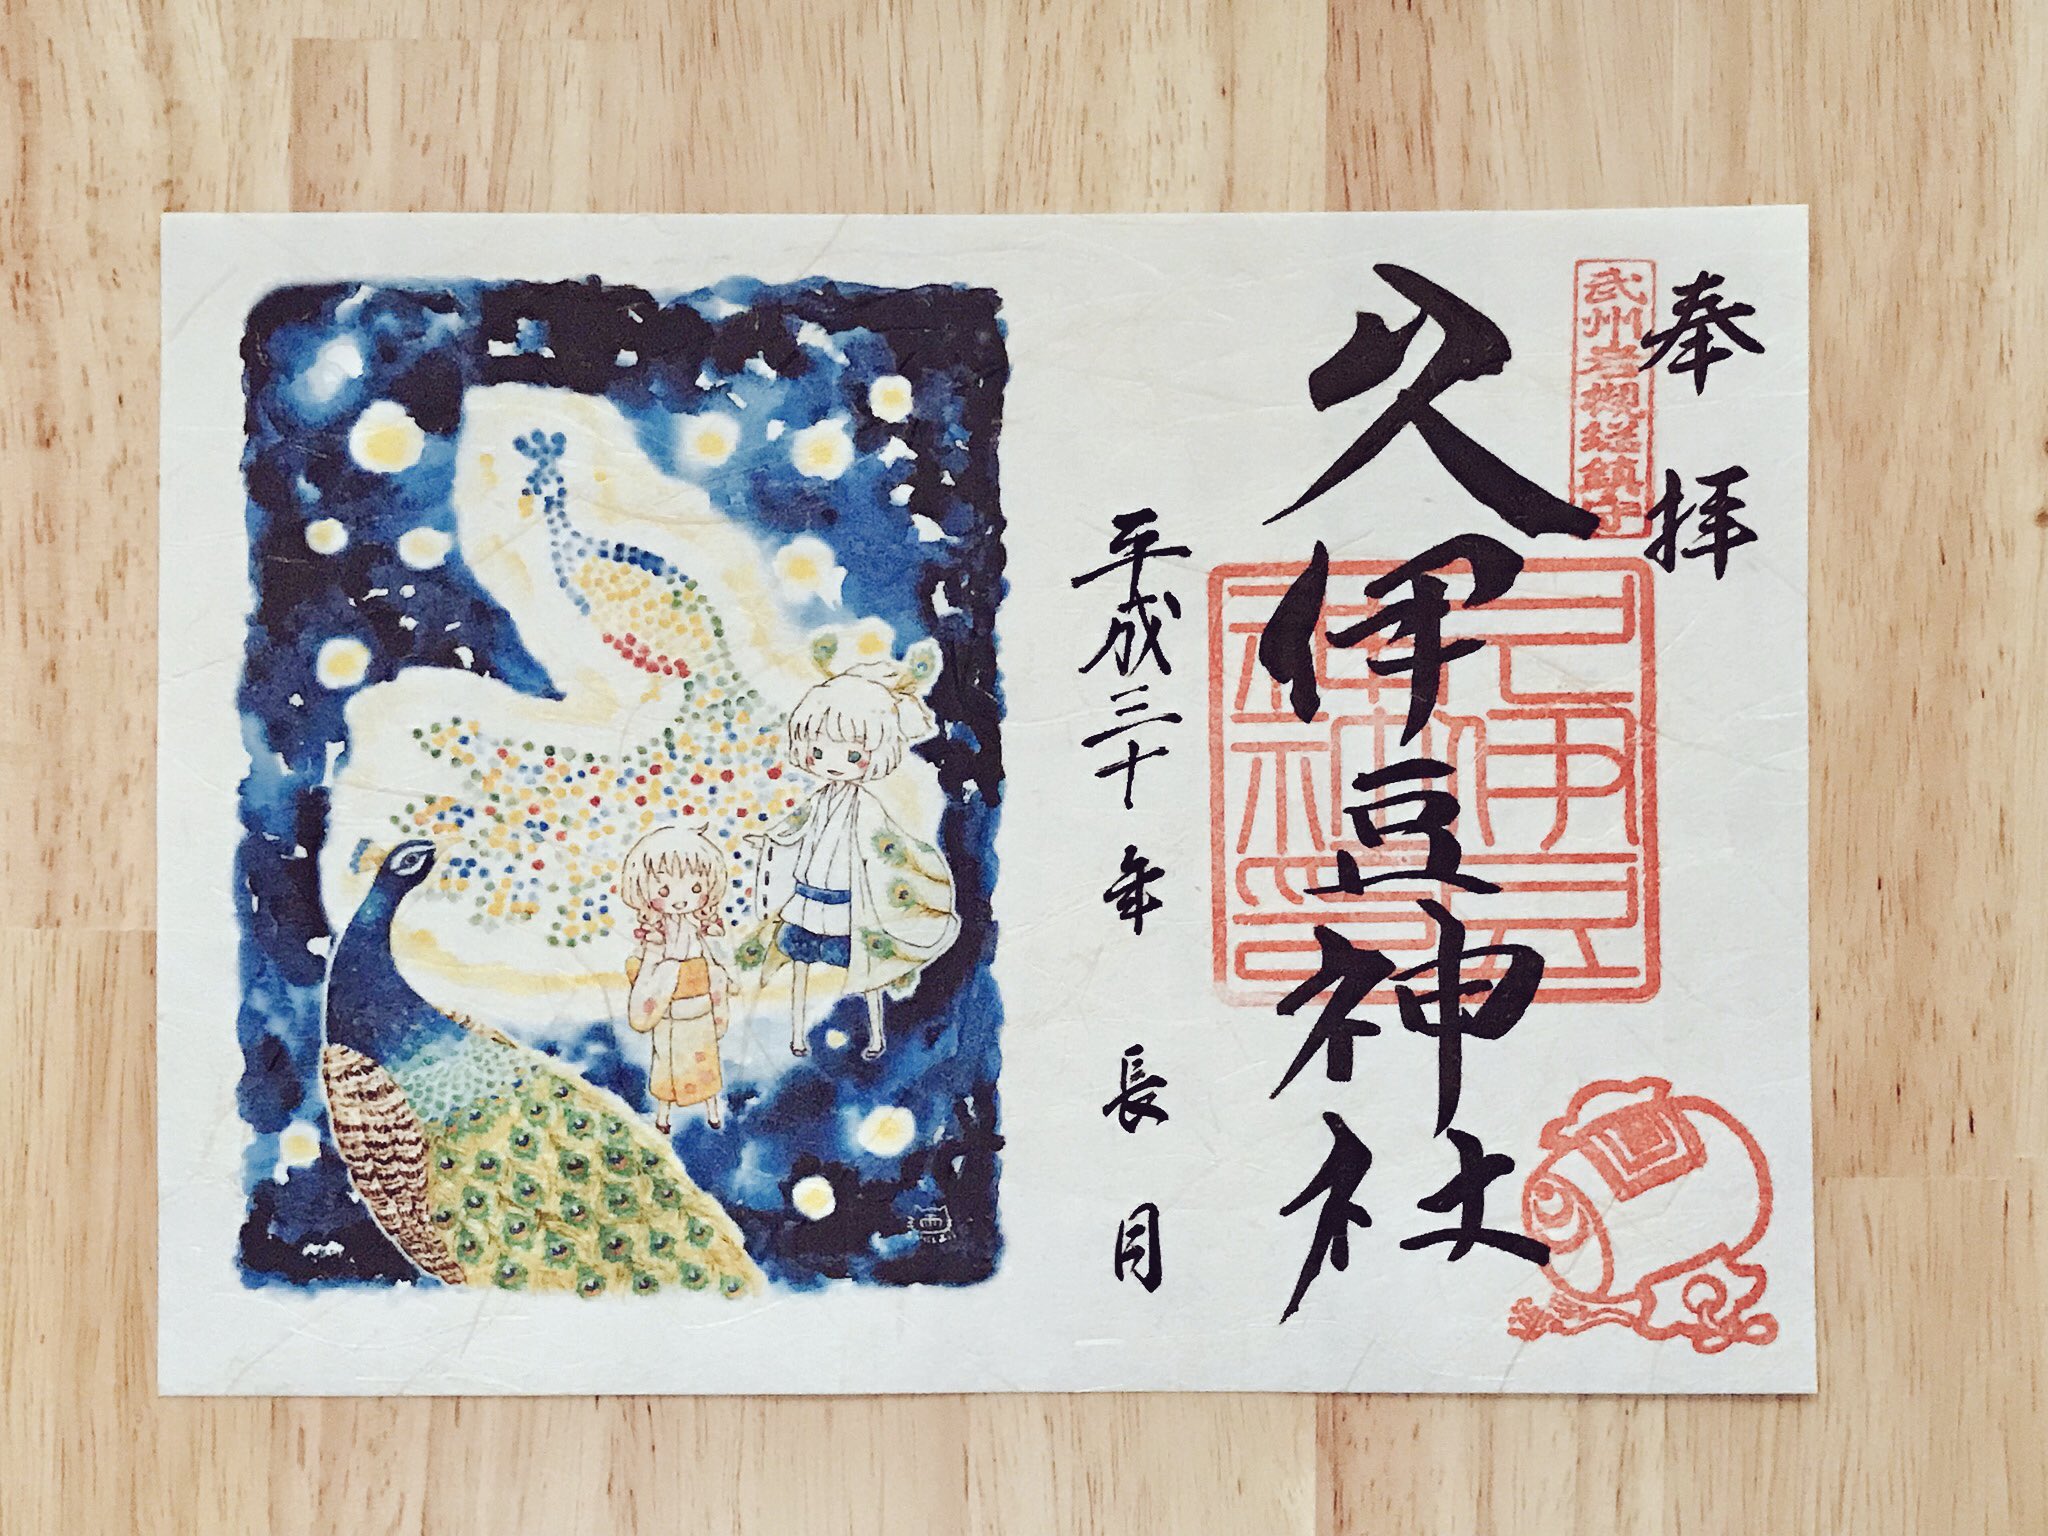 奉拝
武州岩槻総鎮守
久伊豆神社
久伊豆
神社印
平成三十年 長月